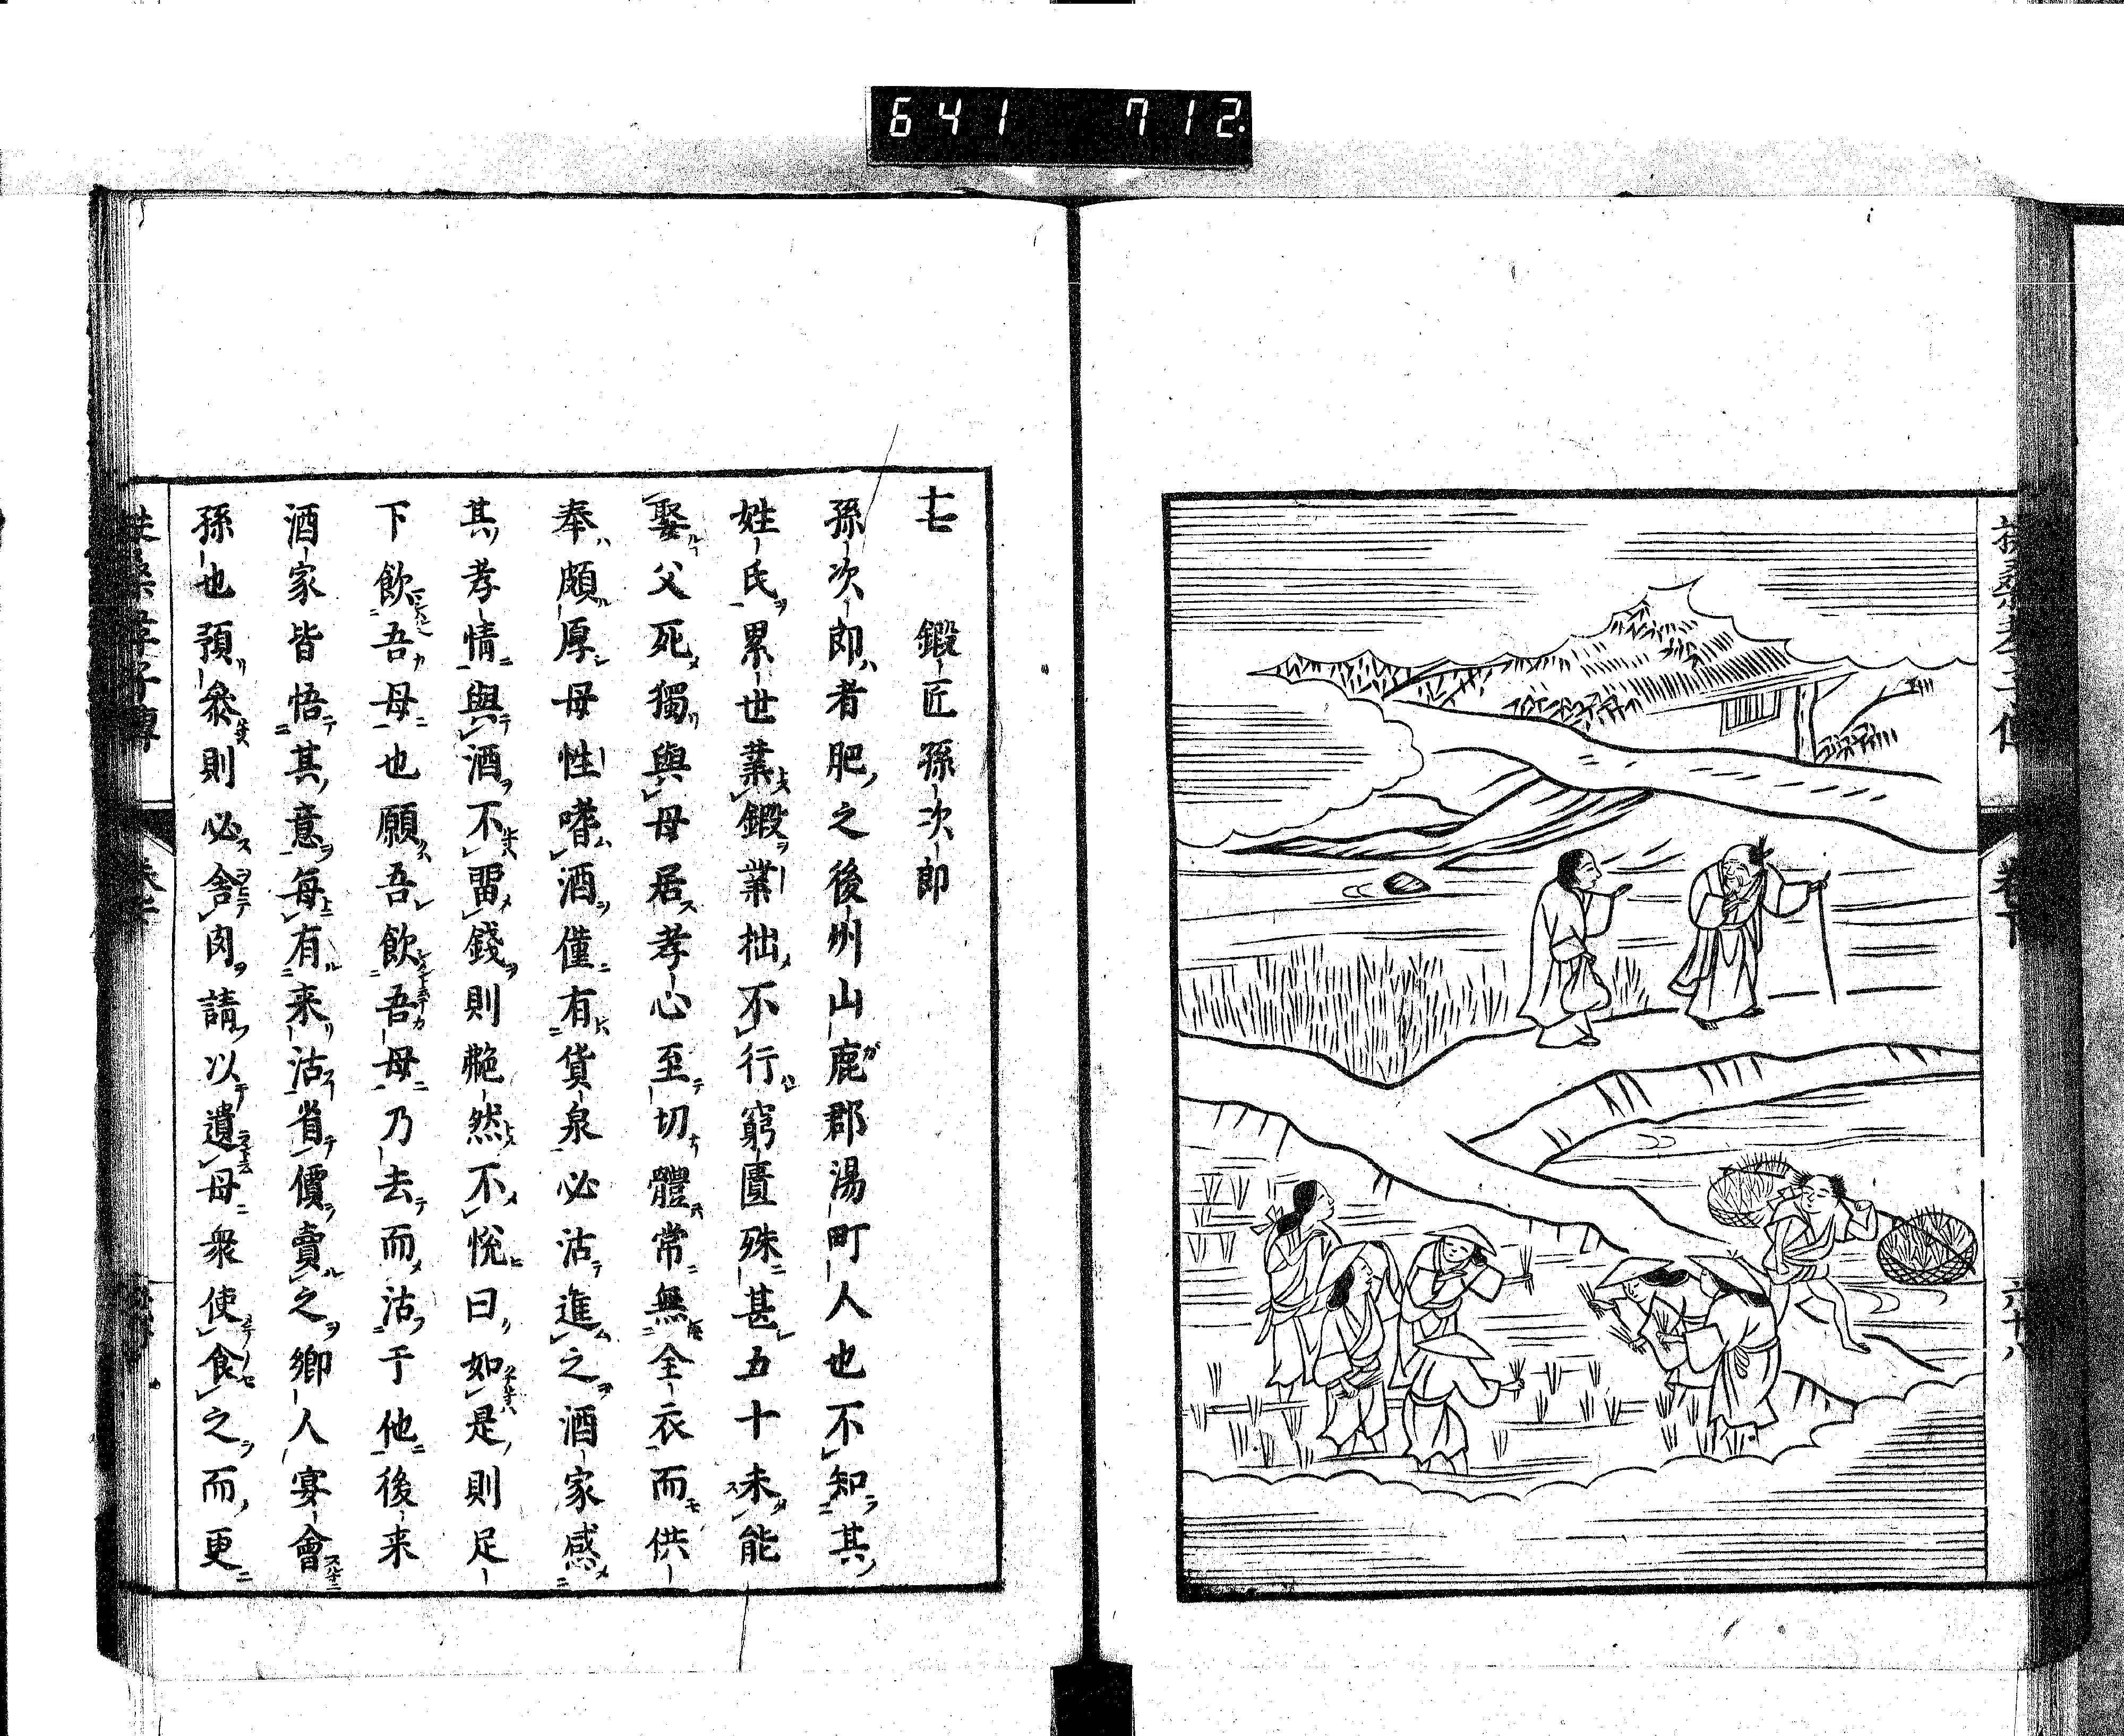 641 712
十七 鍛匠孫次郎
孫次郎者肥之後州山鹿郡湯町人也不知其
姓氏累世業鍛業拙不行窮匱殊甚五十未能
娶父死獨與母居孝心至切體常無全衣而供
奉頗厚母性嗜酒僅有貨泉必沽進之酒家感
其孝情與酒不畱錢則艴然不悅曰如是則足
下飲吾母也願吾飲吾母乃去而沽于他後来
酒家皆悟其意每有来沽省價賣之鄉人宴會
孫也預叅則必舎肉請以遺母衆使食之而更
扶桑孝子傳